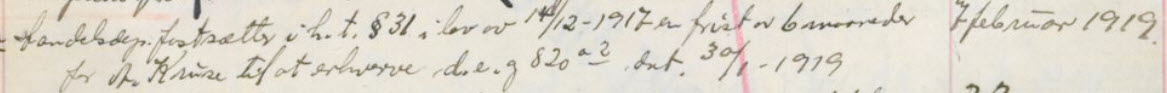 Landbdep. fastsætter i h.t. § 31 i lov av 14/12-1917 en frist av 6 maaneder 7 februar 1919.
for A. Kruse til at erhverve d.e.g 820 a 2 dat. 30/1-1919